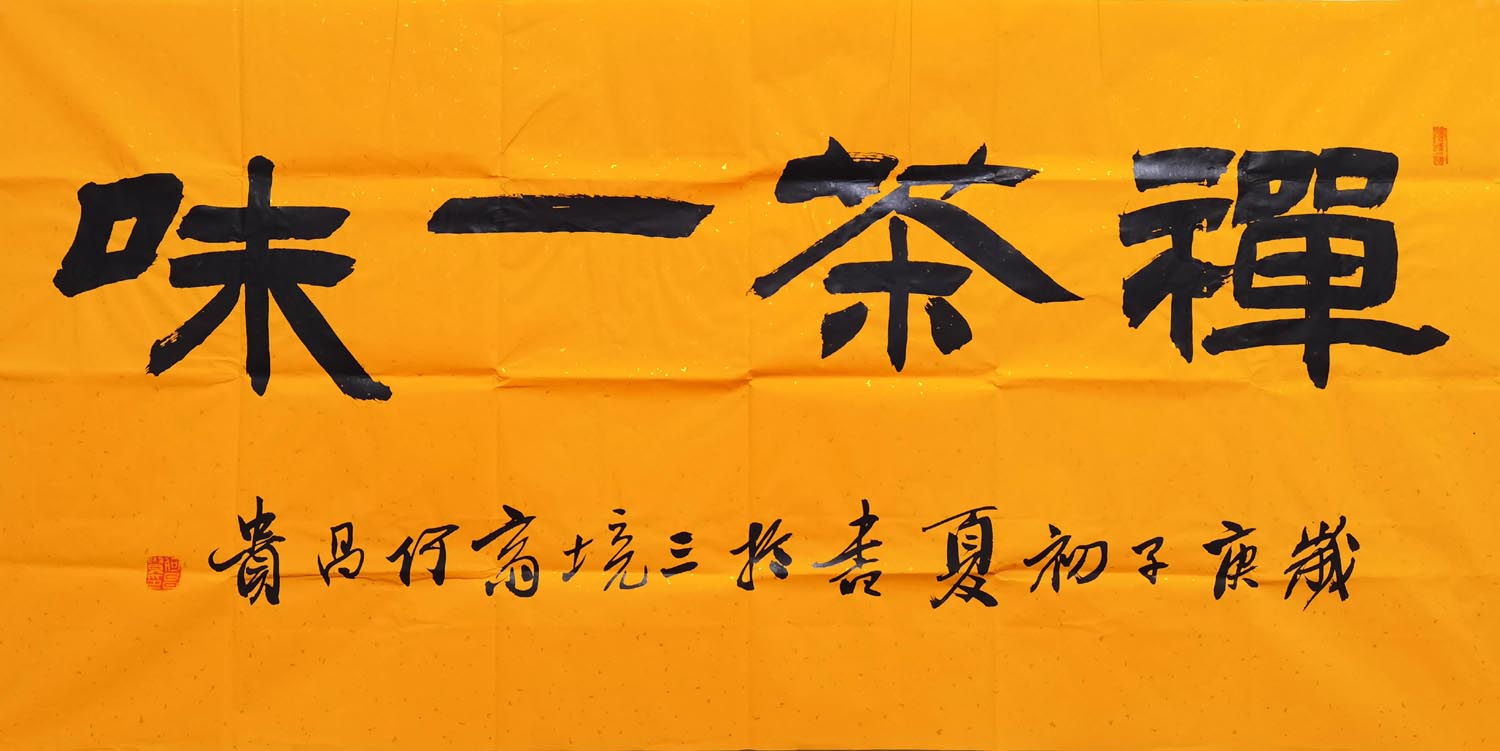 禪茶一味
歲庚子初夏書於三境齋何昌貴